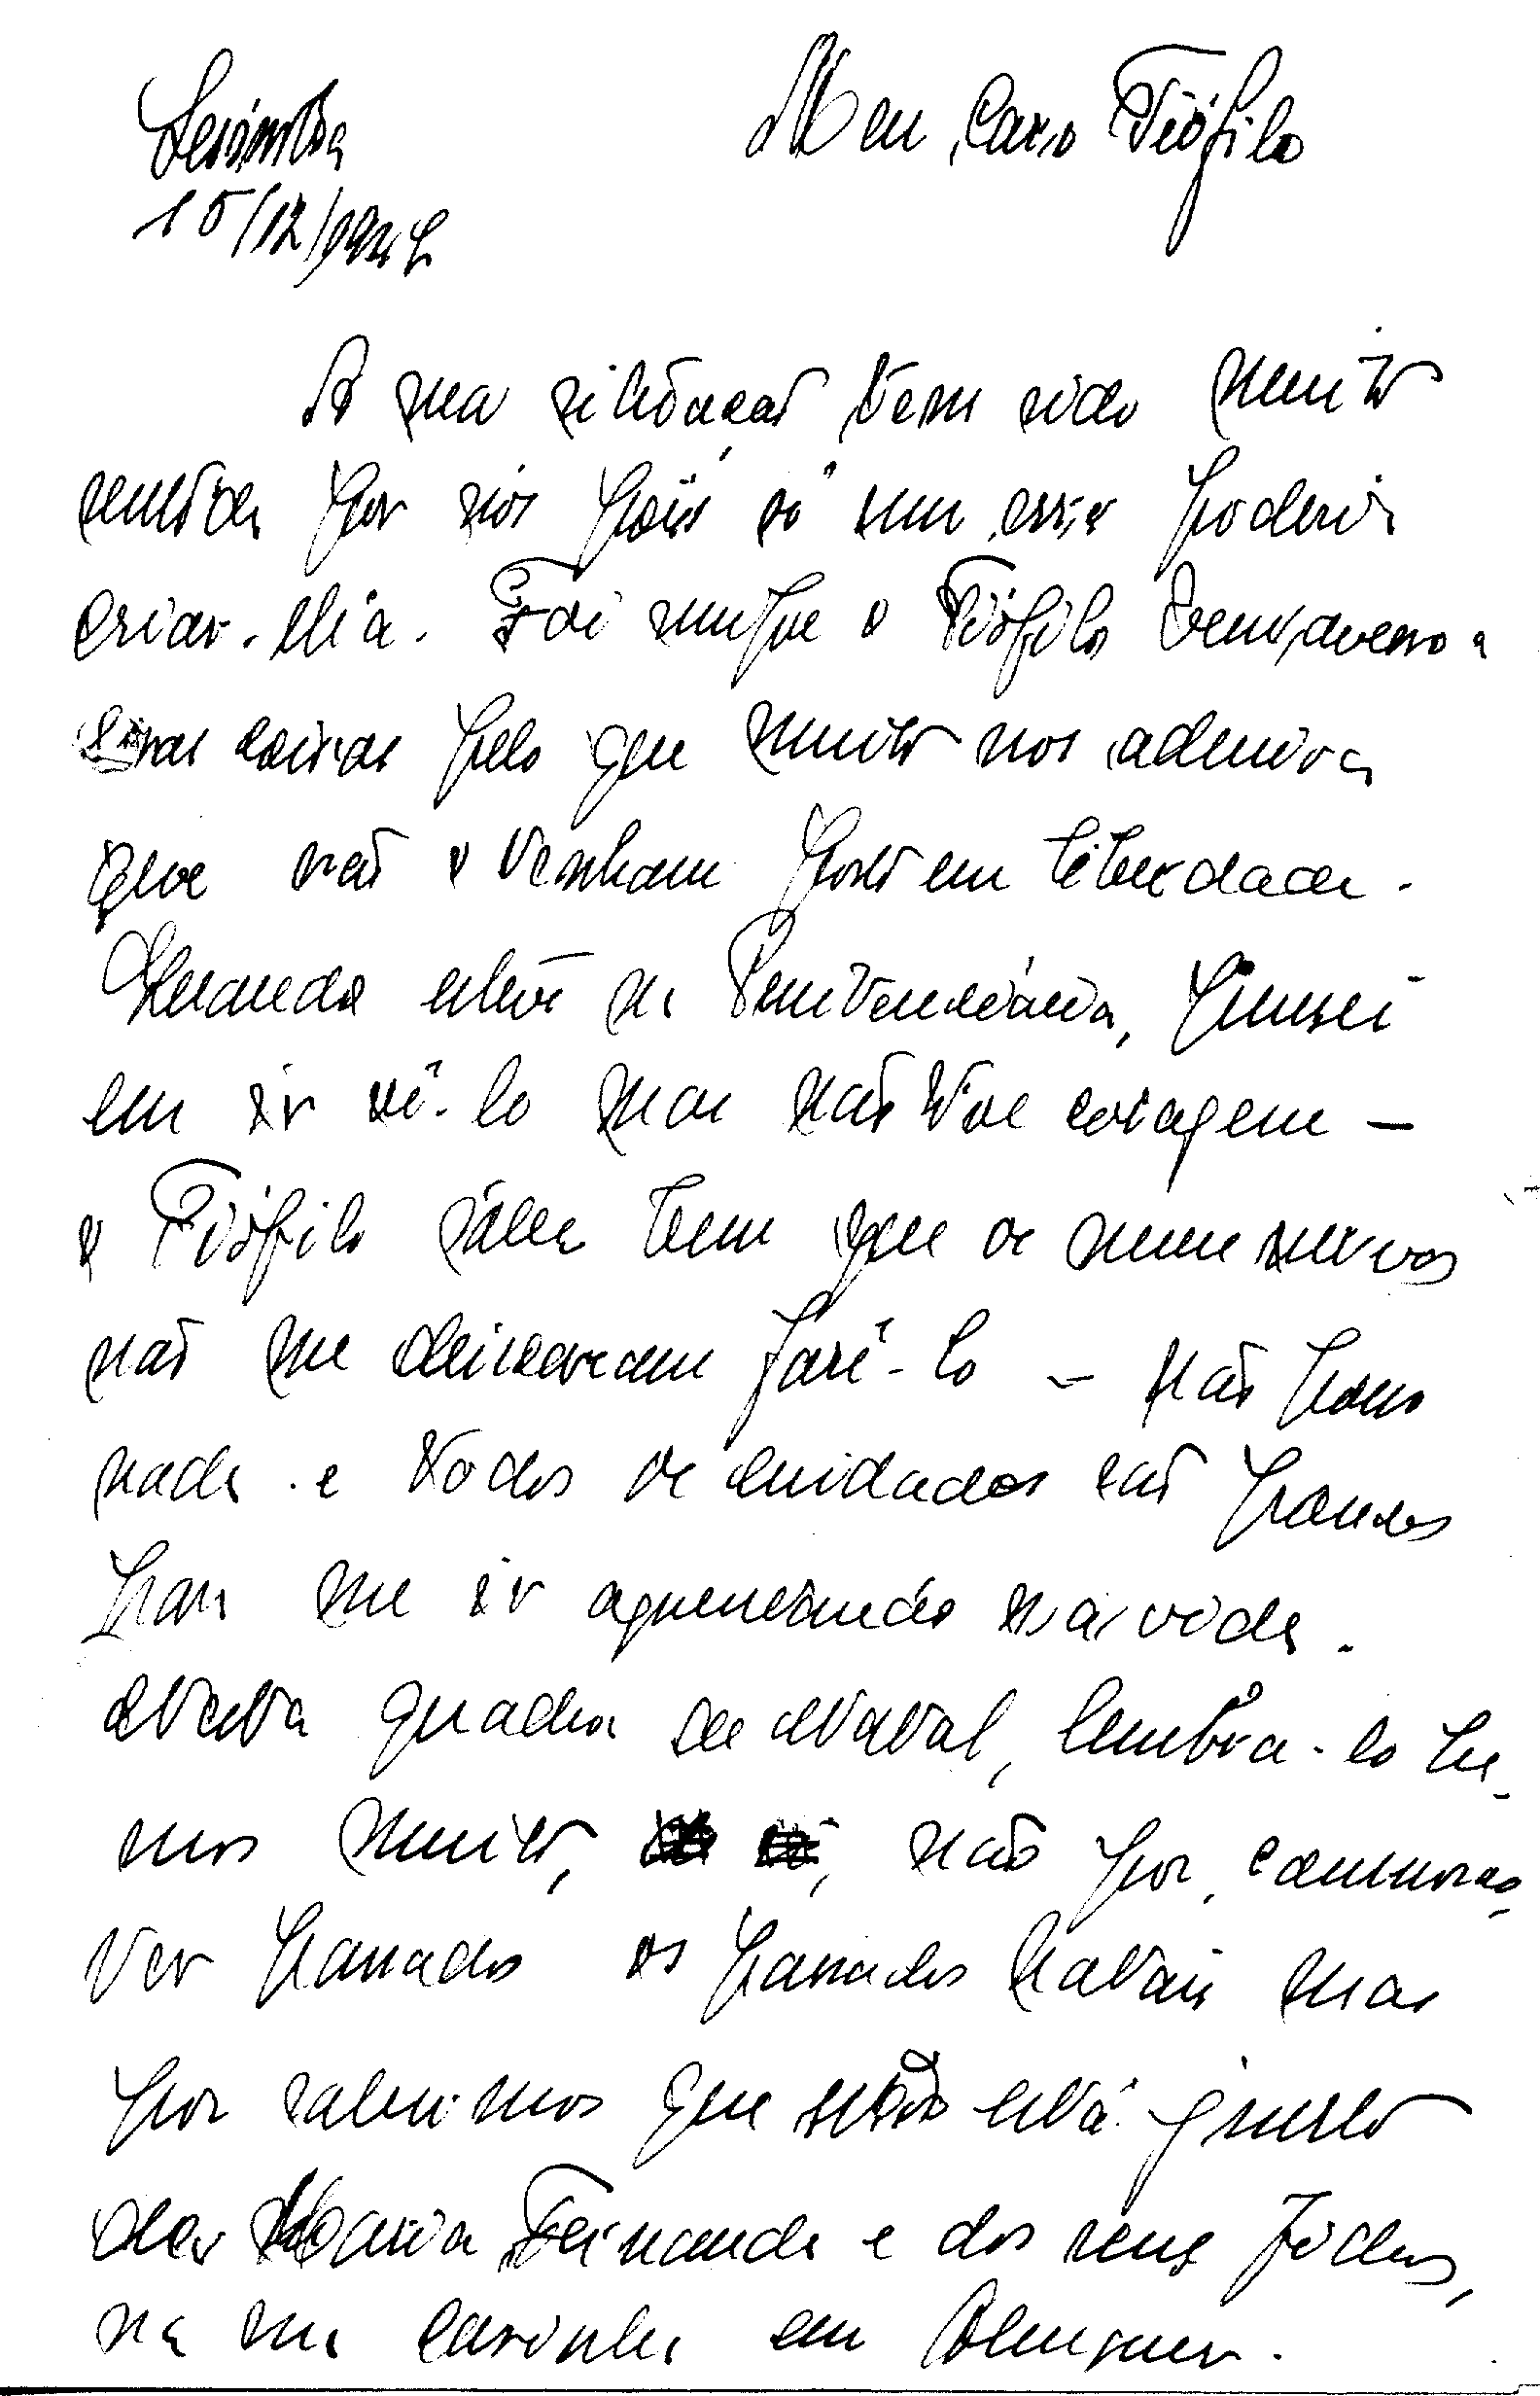 Sesimbra
15/12/1974
Meu Caro Teófilo
A sua situação tem sido muito
sentida por nós pois só um erro poderia
criar-lha. Foi sempre o Teófilo tem averso a
coisas pelo que muito nos admira
que não o tenham posto em liberdade.
Quando esteve na Penitenciária, pensei
em ir vê-lo mas não tive coragem -
o Teófilo sabe bem que os meus nervos
não me deixaram fazê-lo - Não posso
nada e todos os cuidados são poucos
para me ir aguentando na vida.
Nesta quadra de Natal, lembra-lo he-
mos muito, não por
ver passados os passados Natais mas
por sabermos que não está junto
da Maria Fernanda e dos seus filhos,
na sua casinha em Alenquer.